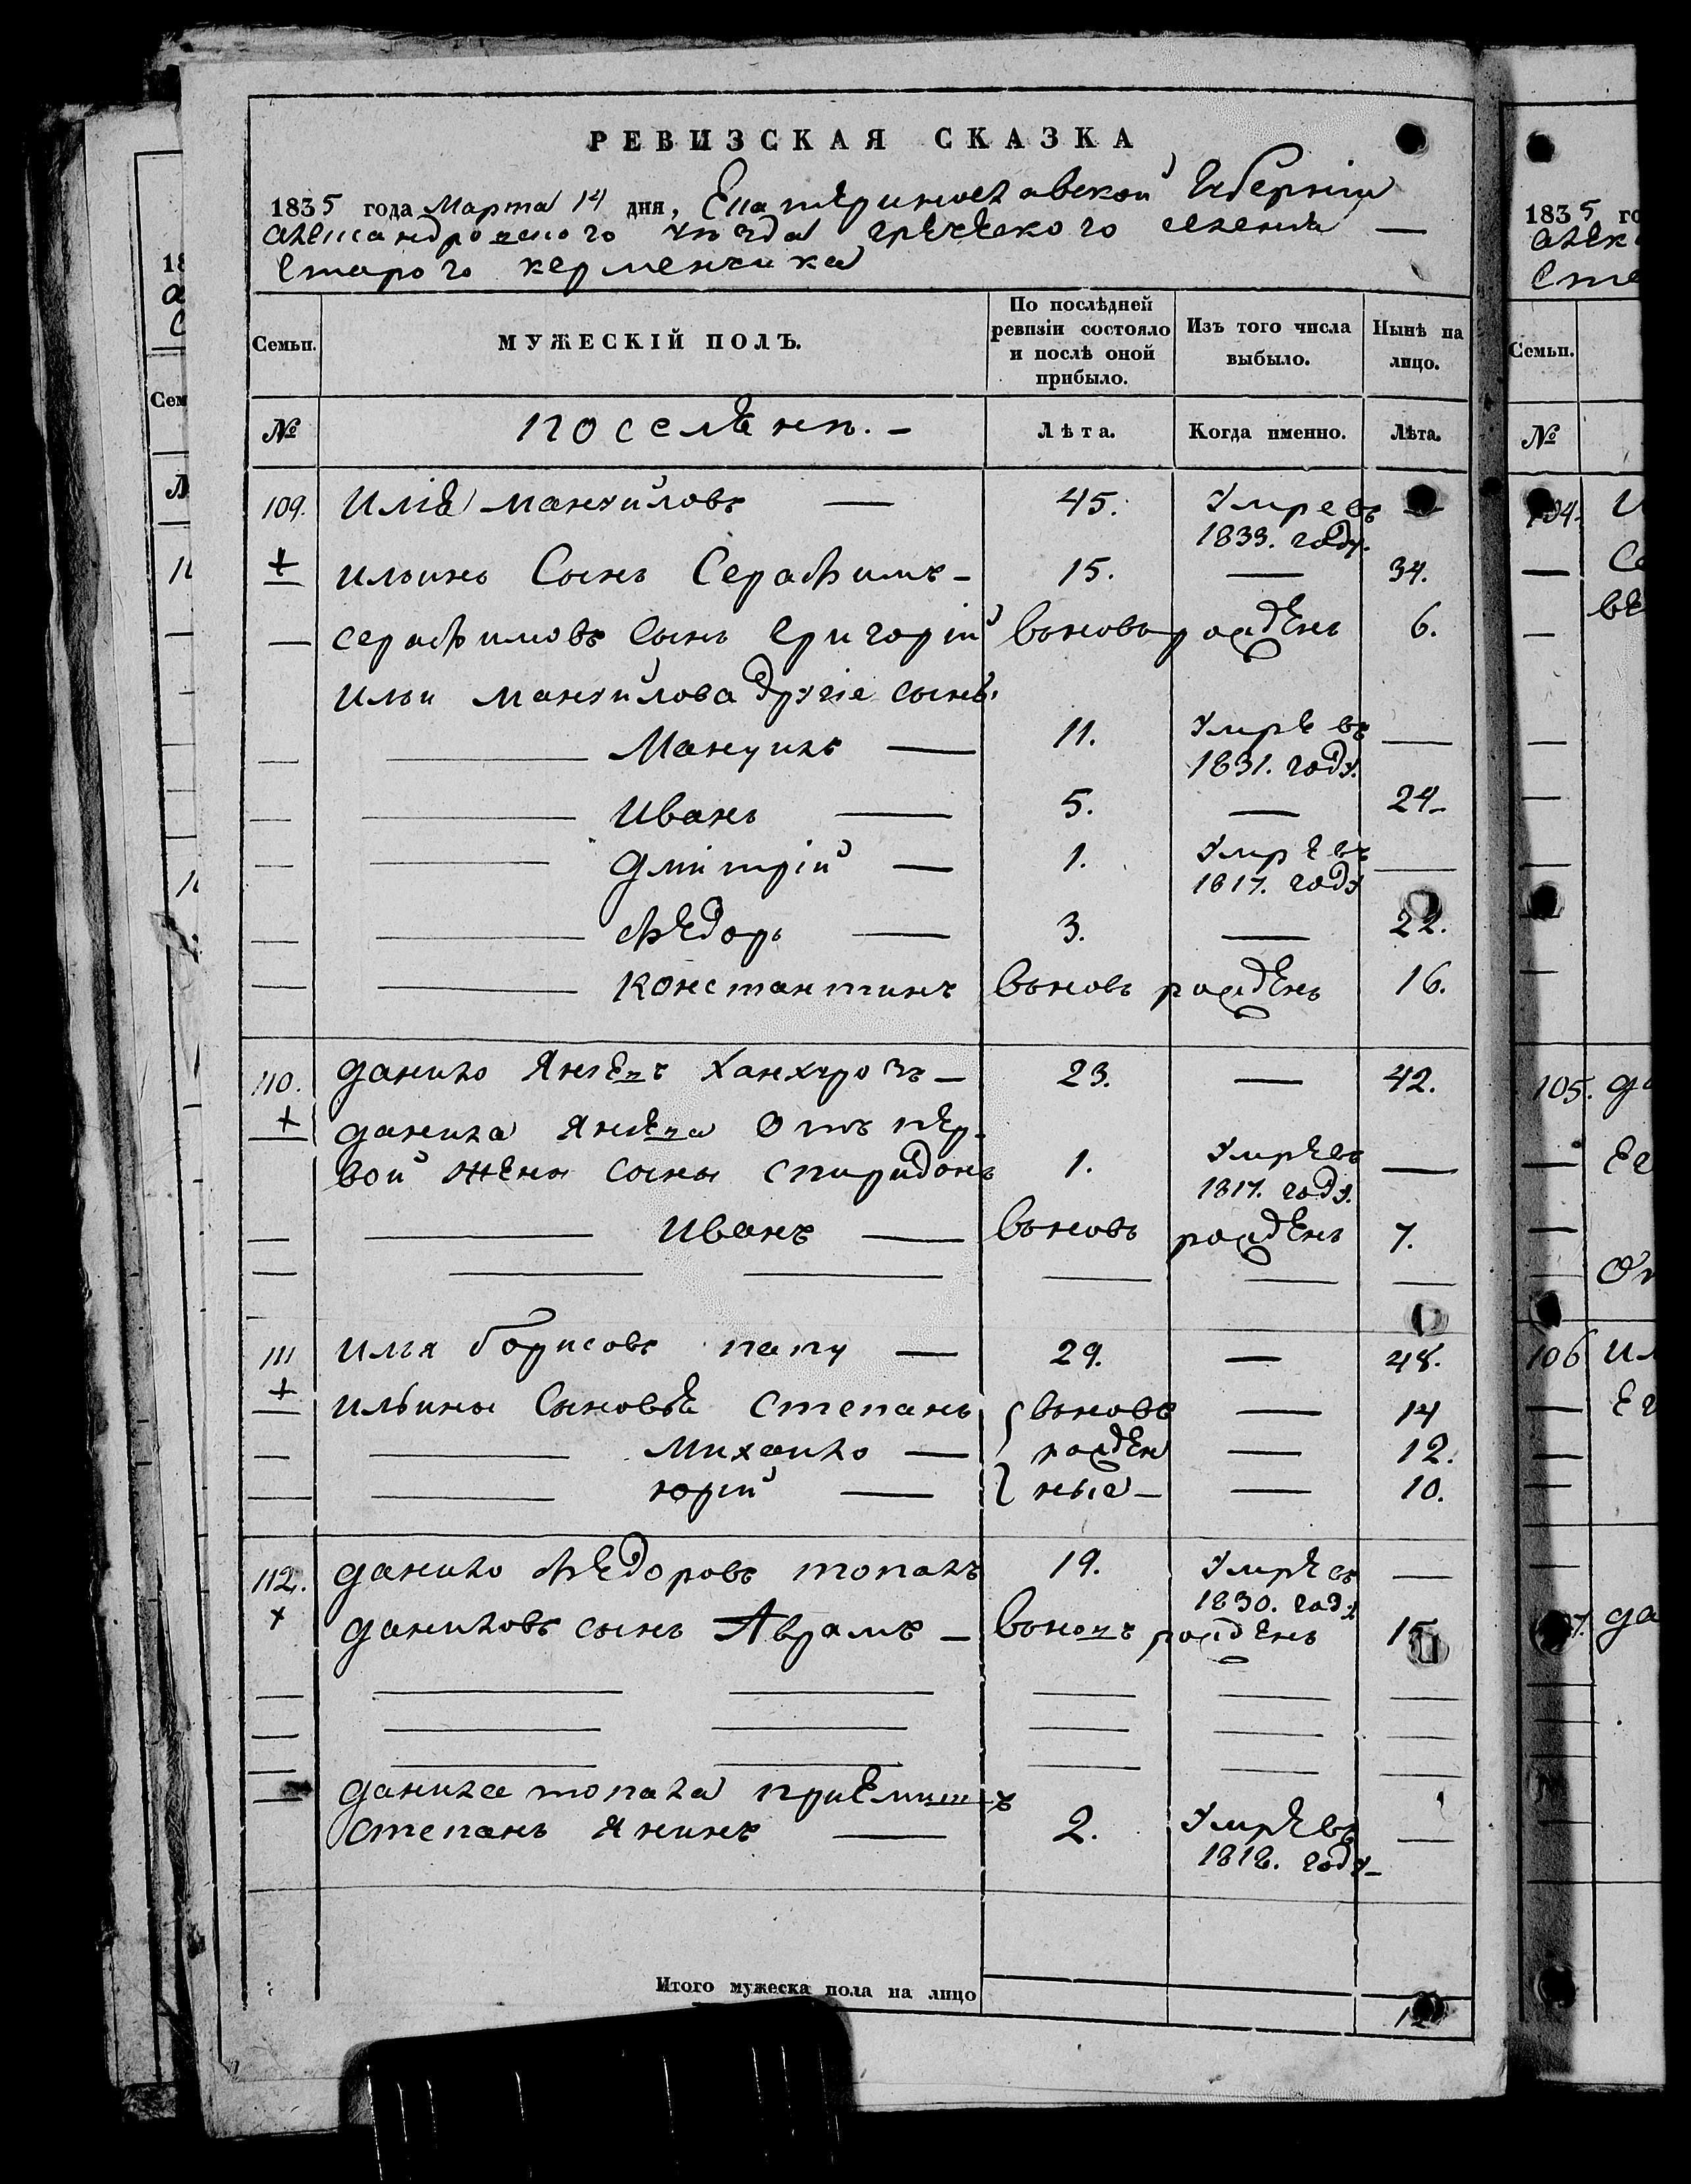 РЕВИЗСКАЯ СКАЗКА
1835 года Марта 14 дня, Екатеринославской Губерніи
александровского уезда греческого селенія —
Старого керменчика
Семьи. МУЖЕСКІЙ ПОЛЪ. По послѣдней ревизіи состояло и послѣ оной прибыло. Изъ того числа выбыло. Нынѣ на лицо.
№ поселѣнъ. — Лѣта. Когда именно. Лѣта.
109. Илія мануиловъ — 45. Умре въ 1833. году. —
+ ильинъ Сынъ Серафимъ — 15. — 34.
— серафимовъ сынъ григорій вьновь рожденъ 6.
ильи мануилова другіе сынъ.
— Мануилъ — 11. Умре въ 1831. году. —
— Иванъ — 5. — 24
— Дмітрій — 1. Умре въ 1817. году —
— Ѳедоръ — 3. — 22.
— константинъ вьновь рожденъ 16.
110. данило Янѣвъ — 23. — 42.
+ данила Янѣва Отъ пер-
вой жены сыны спиридонъ 1. Умре въ 1817. году. —
— иванъ — вьновь рожденъ 7.
111 илія борисовъ папу — 29. — 48.
+ ильины Сыновѣ степанъ вьновь — 14
— михаило — рожден — 12.
— юрій — ные — — 10.
112. данило Ѳедоровъ топалъ 19. Умре въ 1830. году —
+ даниловъ сынъ Аврамъ — вьновь рожденъ 15
данила топала приемышъ
степанъ Янинъ — 2. Умре въ 1818. году —
Итого мужеска пола на лицо
1835 го
алек
Семьи.
№
105. да
106 ил
да